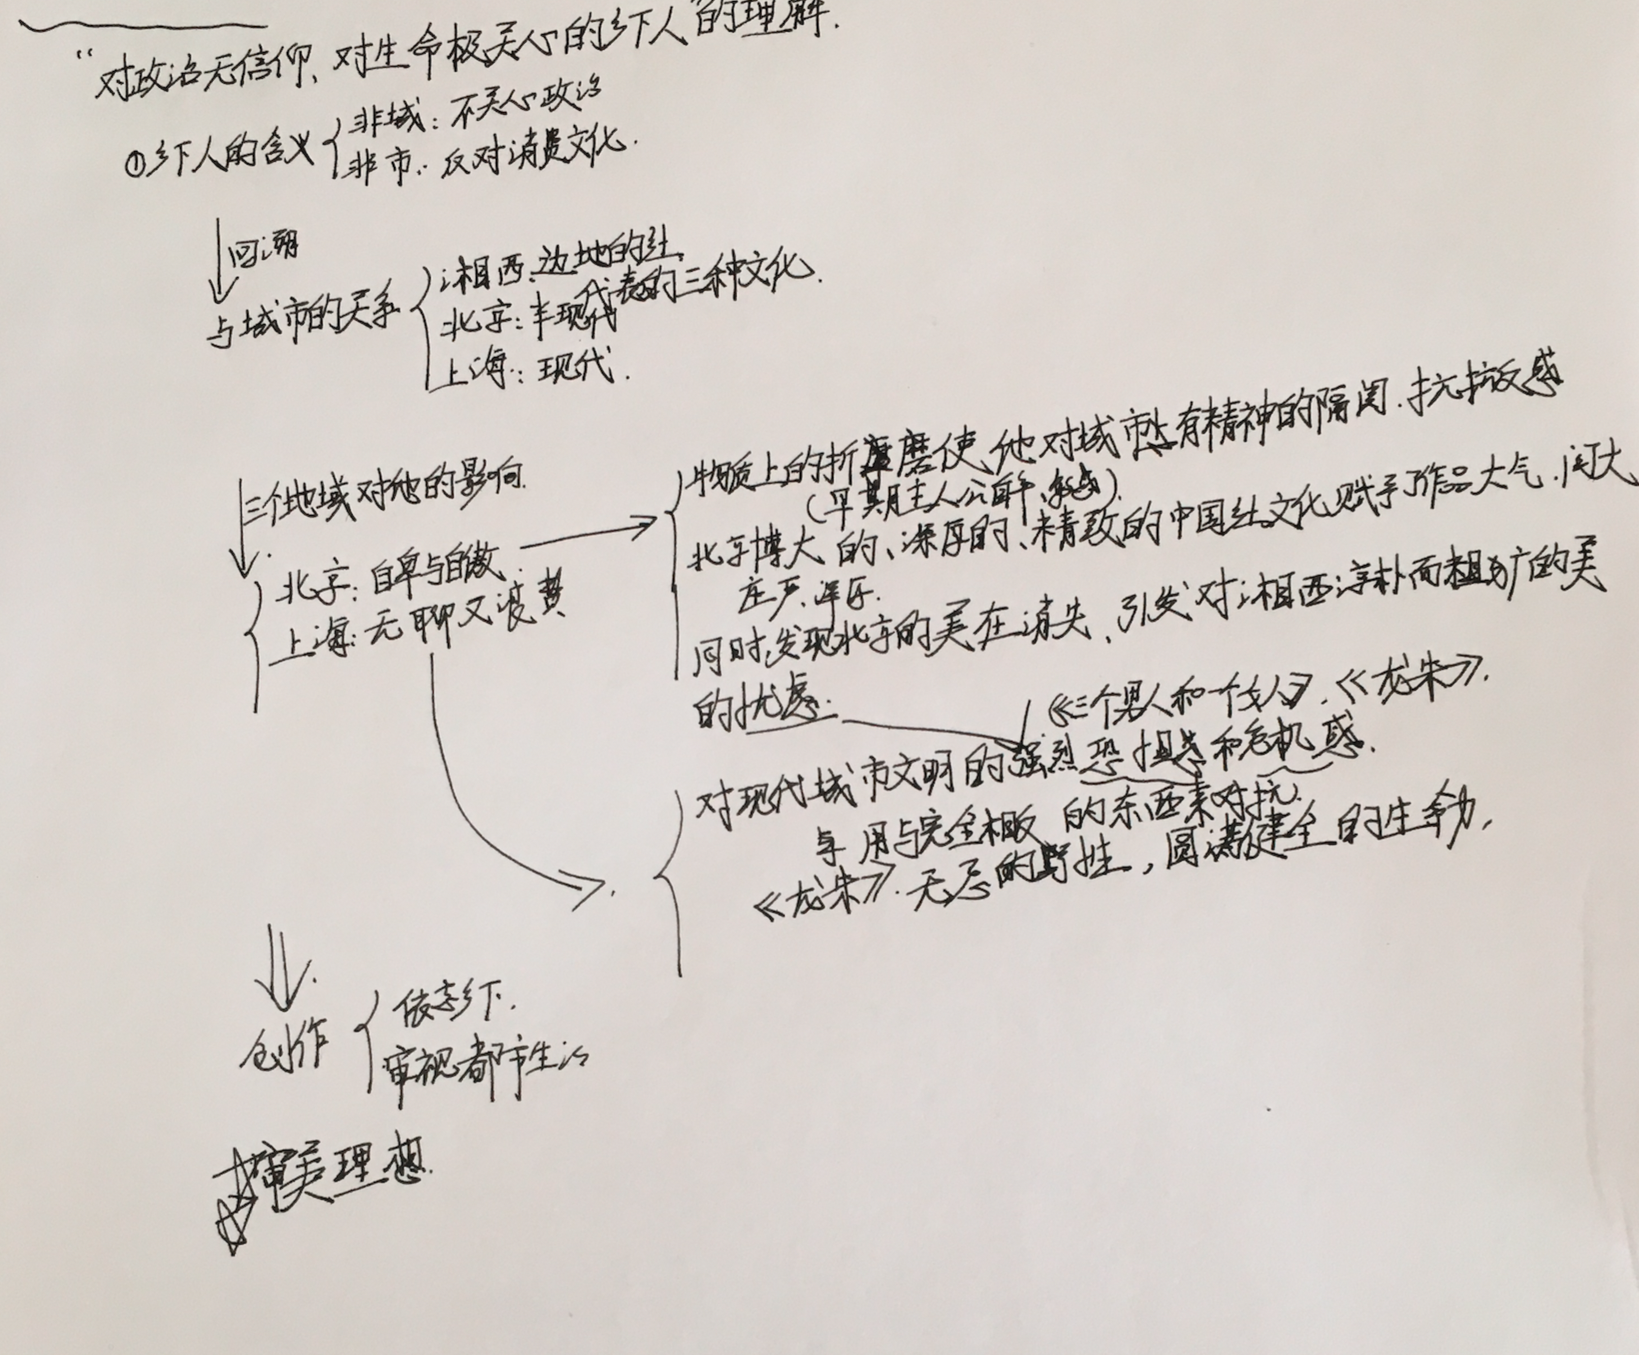 “对政治无信仰、对生命极关心的乡下人”的理解.
①乡下人的含义
非城：不关心政治
非市：反对消费文化.
回溯
与城市的关系
湘西、边地的
代表的三种文化.
北京：半现代
上海：现代.
三个地域对他的影响.
北京：自卑与自傲.
上海：无聊又浪费
物质上的折磨使他对城市有精神的隔阂.抗拒反感
(早期主人公
北京博大的、深厚的、精致的中国文化赋予了作品大气.阔大
庄严.
同时,发现北京的美在消失、引发对湘西淳朴而粗犷的美
的忧虑.
《三个男人和一个女人》.《龙朱》.
对现代城市文明的强烈恐惧感和危机感.
用与完全相反的东西来对抗.
《龙朱》.无忌的野性，圆满健全的生命力,
创作
依恋乡下.
审视都市生活
审美理想.